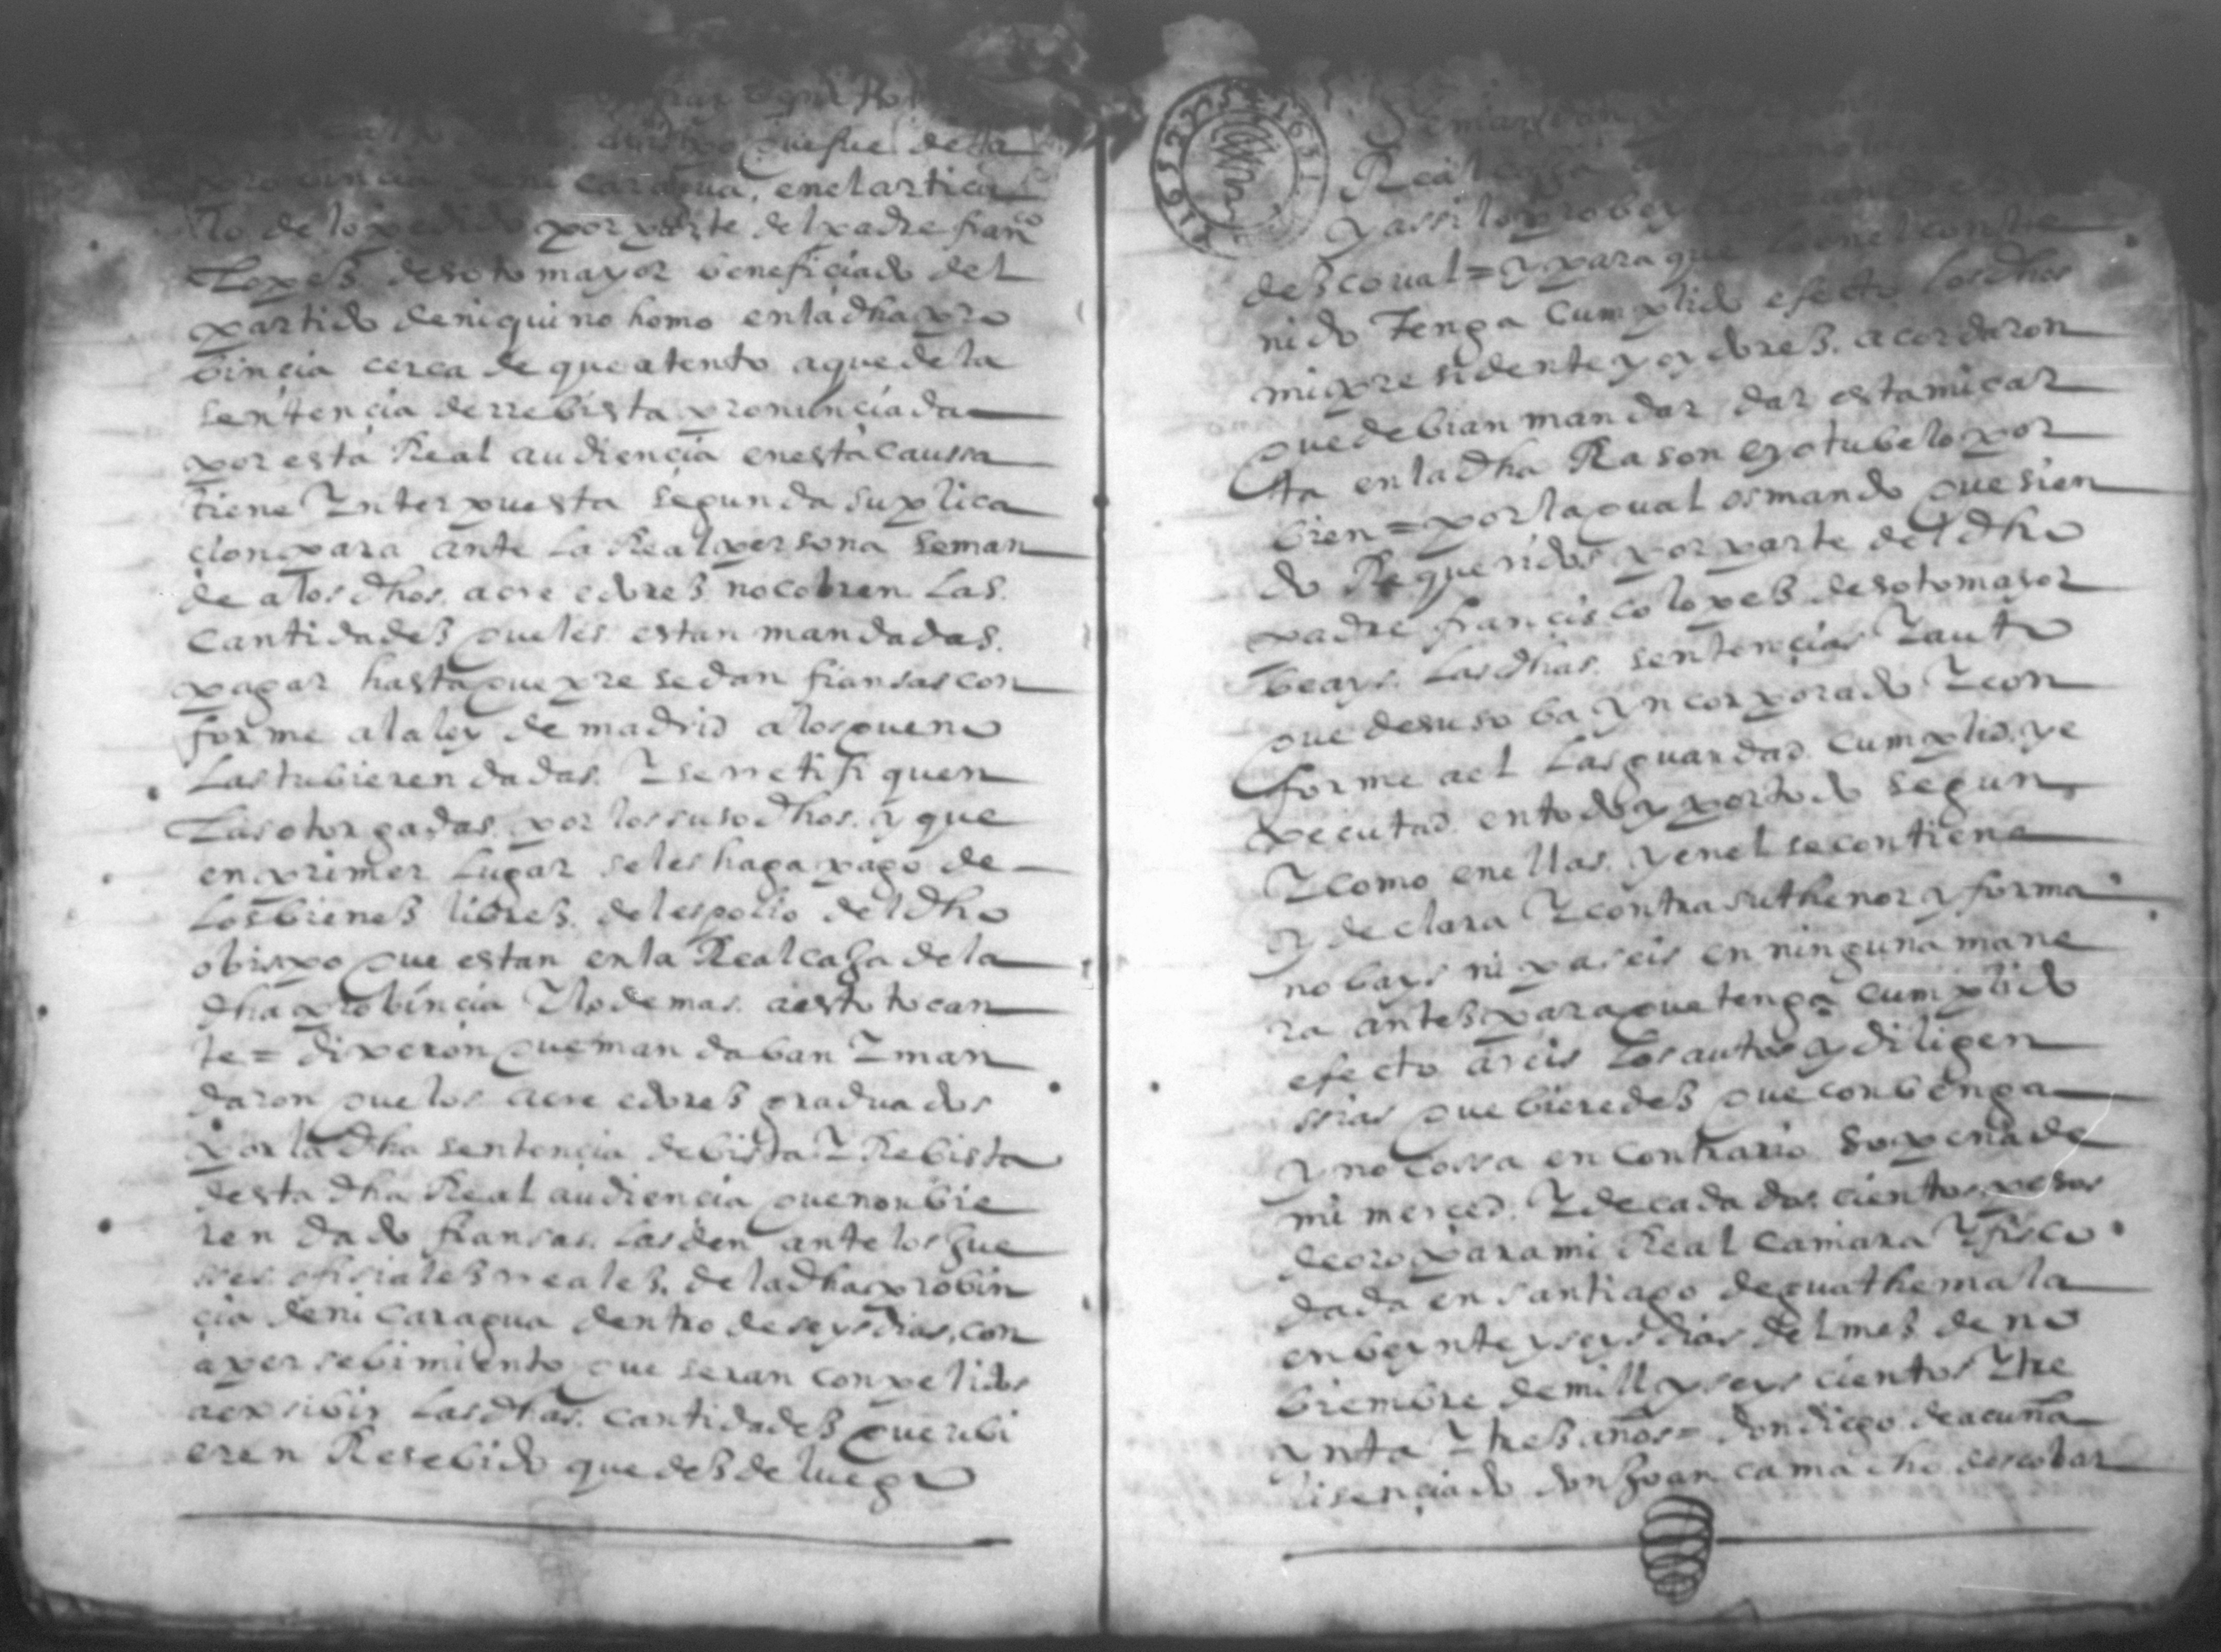 obispo que fue desta
probincia de nicaragua, en el articu
lo de lo pedido por parte del padre fran^co
Lopes de sotomayor beneficiado del
partido de niquinohomo en la dha pro
bincia cerca de que atento a que de la
sentençia de rrebista pronunçiada
por esta Real audiençia en esta caussa
tiene Ynterpuesta segunda suplica
cion para ante la Real persona se man
de a los dhos. acreedores no cobren las.
cantidades que les estan mandadas.
pagar hasta que presedan fiansas con
forme a la ley de madrid a los que no
las tubieren dadas. Y se rretifiquen
Las otorgadas. por los susodhos. y que
en primer lugar se les haga pago de
los bienes libres. del espolio del dho
obispo que estan en la Real caxa de la
dha probincia Y lo demas. a esto tocan
te = dixeron que mandaban Y man
daron que los acreedores graduados
por la dha sentençia de bista Y Rebista
desta dha Real audiençia que no ubie
ren dado fiansas. las den ante los Jue
ses ofisiales rreales. de la dha probin
çia de nicaragua dentro de seys dias, con
apersebimiento que seran conpelidos
a exsibir las dhas. cantidades que ubi
eren Resebido que desde luego
Real caxa
Y assi lo probeyeron
descoual = Y para que lo en el conte
nido Tenga cumplido efecto los dhos
mi presidente y oydores. acordaron
que debian mandar dar esta mi car
ta en la dha Rason e yo tubelo por
bien = por la qual os mando que sien
do Requeridos por parte del dho
padre francisco lopes de sotomayor
beays. las dhas. sentençias Y auto
que de suso ba yncorporado Y con
forme a el las guardad. cumplid. y e
xecutad. en todo y por todo segun
Y como en ellas. y en el se contiene
y declara Y contra su thenor y forma
no bays ni paseis en ninguna mane
ra antes para que tenga cumplido
efecto areis los autos y diligen
ssias que bieredes que conbenga
Y no cossa en contrario so pena de
mi merced. Y de cada dos. cientos pesos
de oro para mi Real camara Y fisco
dada en santiago de guathemala
en beynte y seys dias del mes de no
biembre de mill y seys cientos Y tre
ynta Y tres años = don diego de acuña
lisençiado don Joan camacho descobar